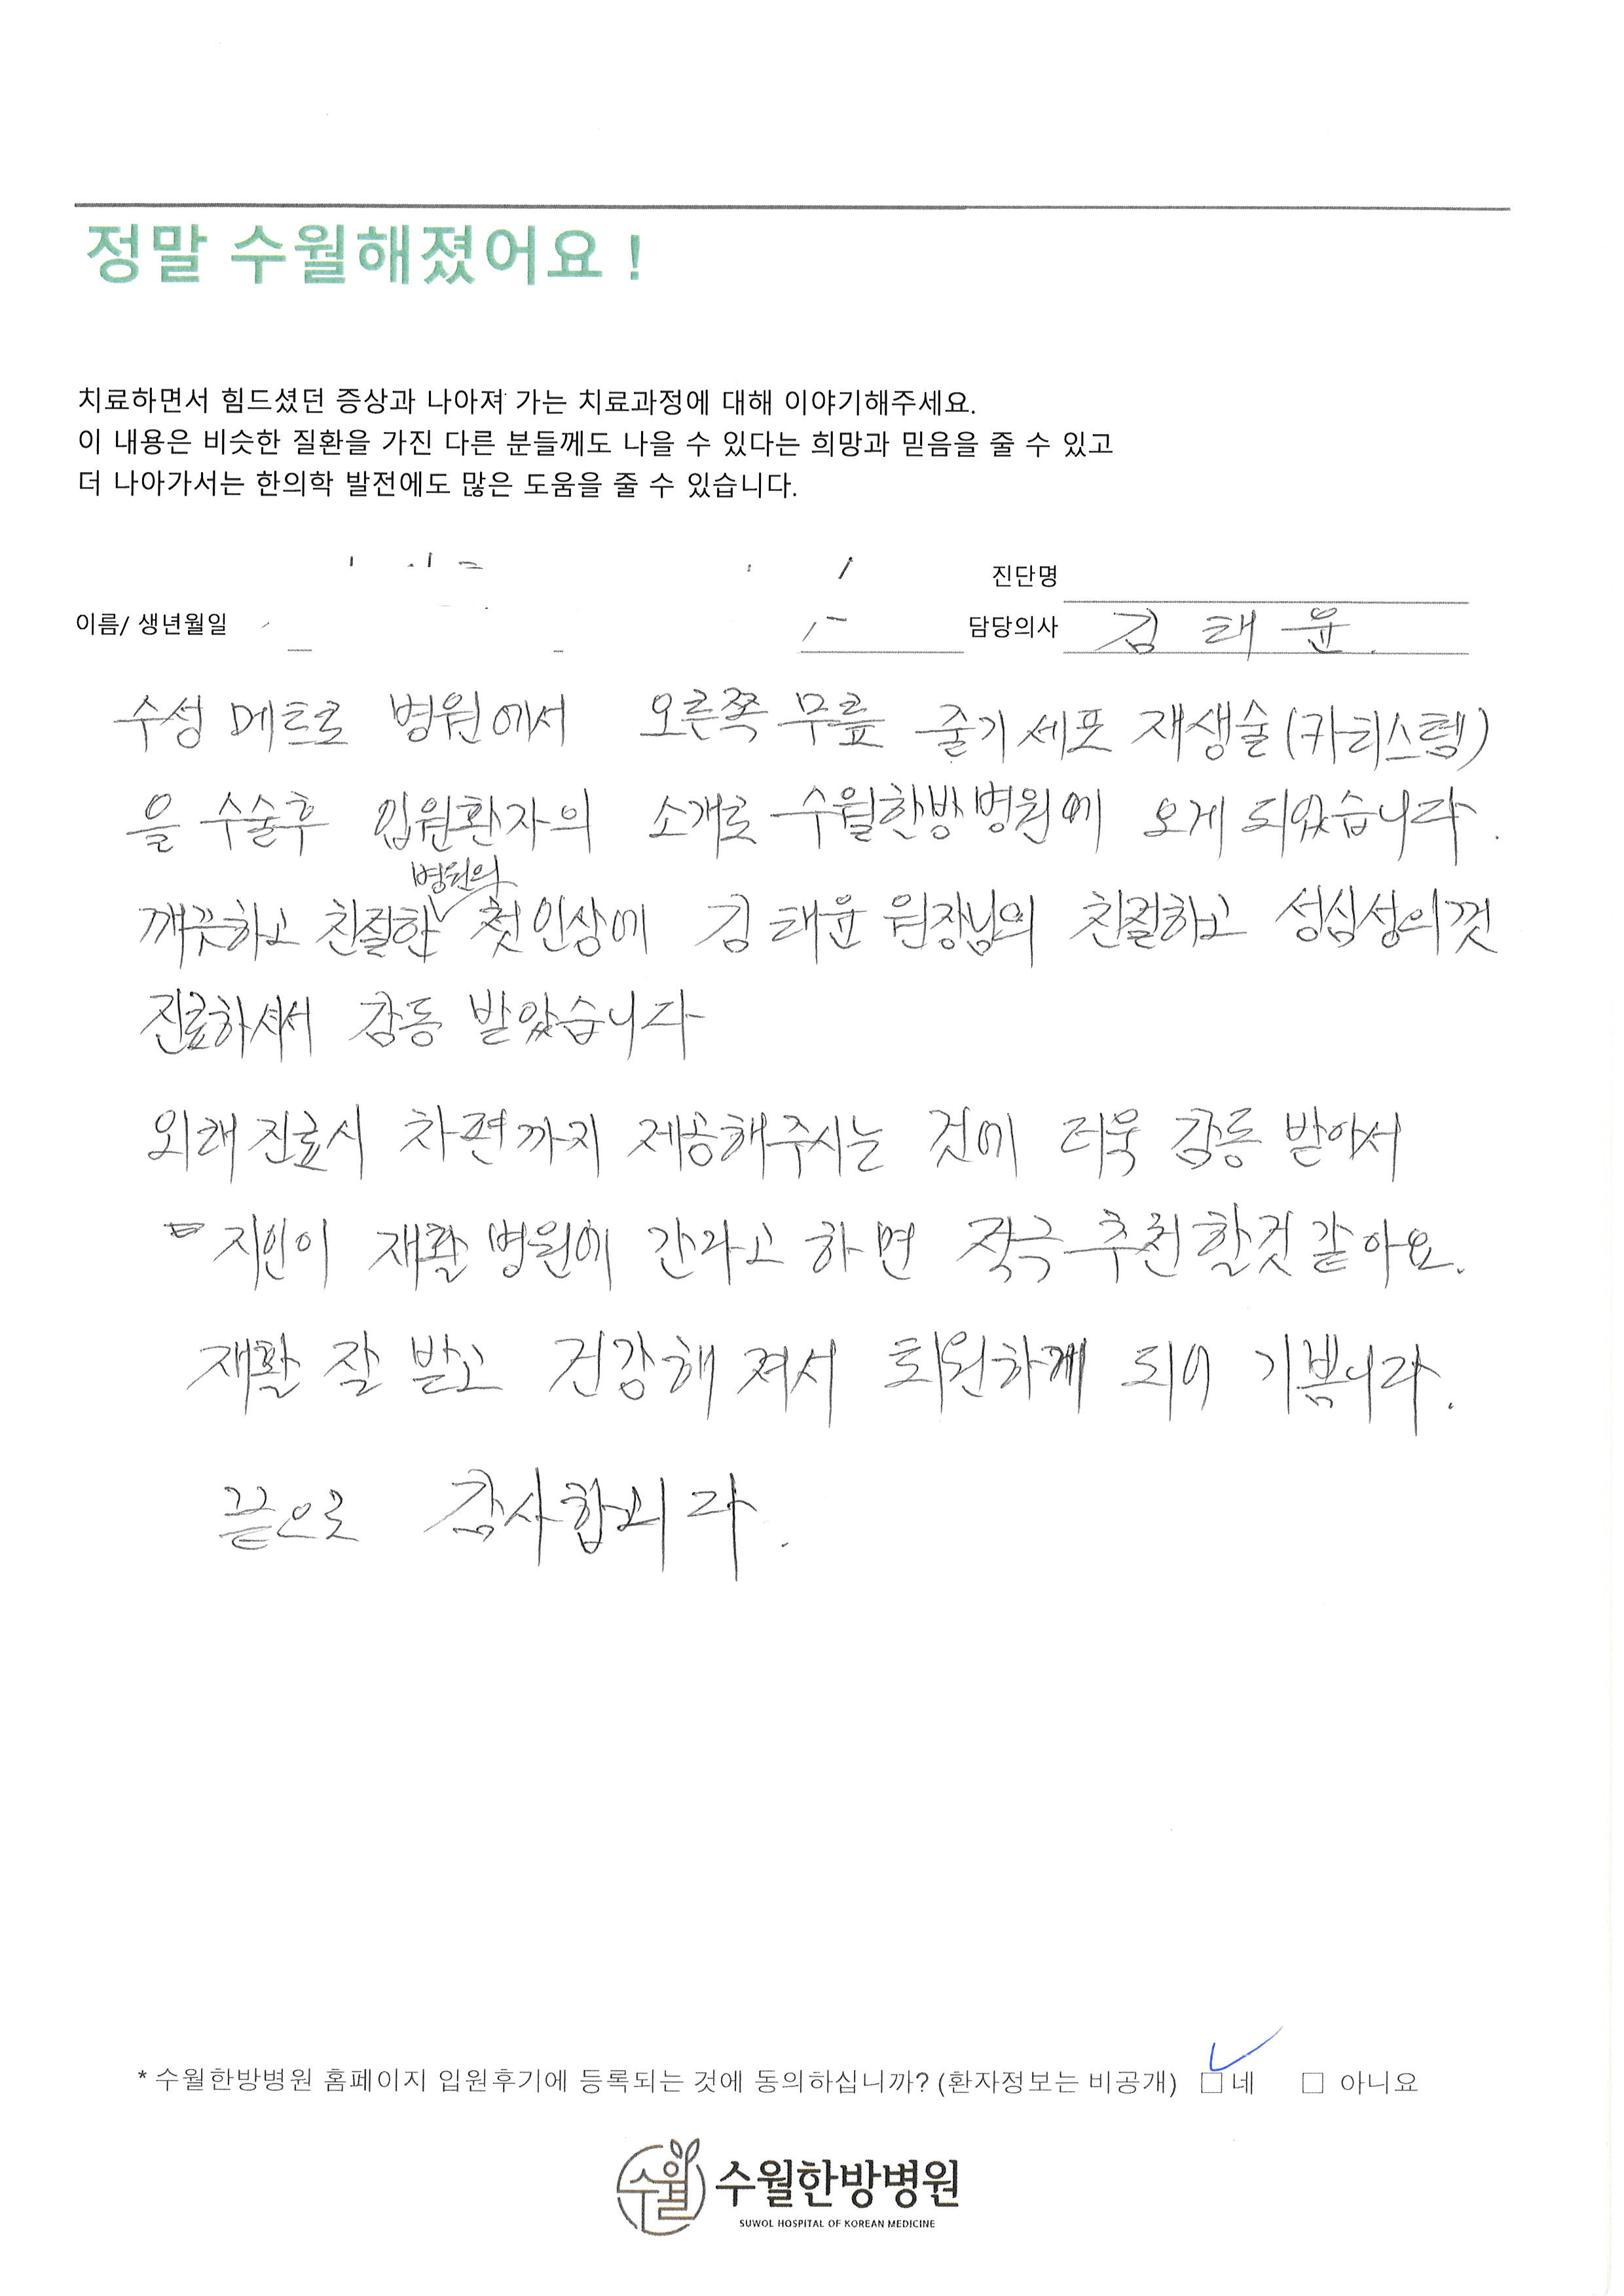 정말 수월해졌어요 !
치료하면서 힘드셨던 증상과 나아져 가는 치료과정에 대해 이야기해주세요.
이 내용은 비슷한 질환을 가진 다른 분들께도 나을 수 있다는 희망과 믿음을 줄 수 있고
더 나아가서는 한의학 발전에도 많은 도움을 줄 수 있습니다.
진단명
이름/ 생년월일 담당의사 김태윤.
수성 메트로 병원에서 오른쪽 무릎 줄기세포 재생술(카티스템)
을 수술후 입원환자의 소개로 수월한방병원에 오게 되었습니다.
병원의
깨끗하고 친절한 첫인상에 김태윤 원장님의 친절하고 성심성의껏
진료하셔서 감동 받았습니다
외래 진료시 차편까지 제공해주시는 것에 더욱 감동 받아서
지인이 재활병원에 간다고 하면 적극 추천할것 같아요.
재활 잘 받고 건강해 져서 퇴원하게 되어 기쁨니다.
끝으로 감사합니다.
* 수월한방병원 홈페이지 입원후기에 등록되는 것에 동의하십니까? (환자정보는 비공개) ☐ 네 ☐ 아니요
수월 수월한방병원
SUWOL HOSPITAL OF KOREAN MEDICINE